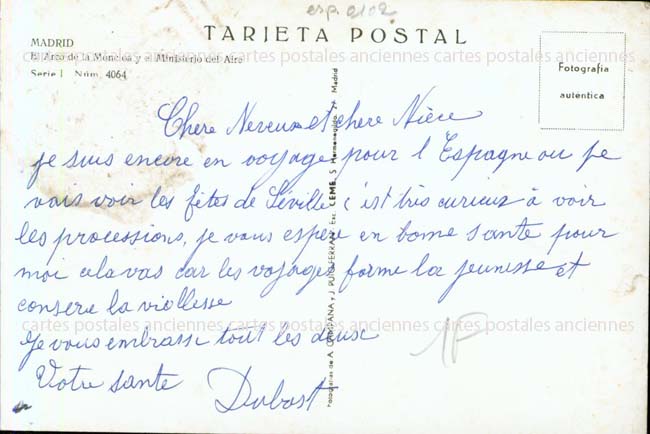 esp. 2102
TARJETA POSTAL
MADRID
El Arco de la Moncloa y el Ministerio del Aire
Serie I Núm. 4064
Fotografía
auténtica
cartes postales anciennes cartes postales anciennes cartes postales anciennes
Chere Neveux et chere Nièce
je suis encore en voyage pour l'Espagne ou je
vais voir les fêtes de Séville c'est très curieux à voir
les processions, je vous espère en bonne sante pour
moi cela vas car les voyages forme la jeunesse et
consere la viellesse
cartes postales anciennes cartes postales anciennes cartes postales anciennes
Je vous embrasse tout les deux
1F
Votre tante
Dubost
Fotografías de A. CAMPAÑA y J. PUIG FERRAN Exc. LEME, S. Hermenegildo Madrid